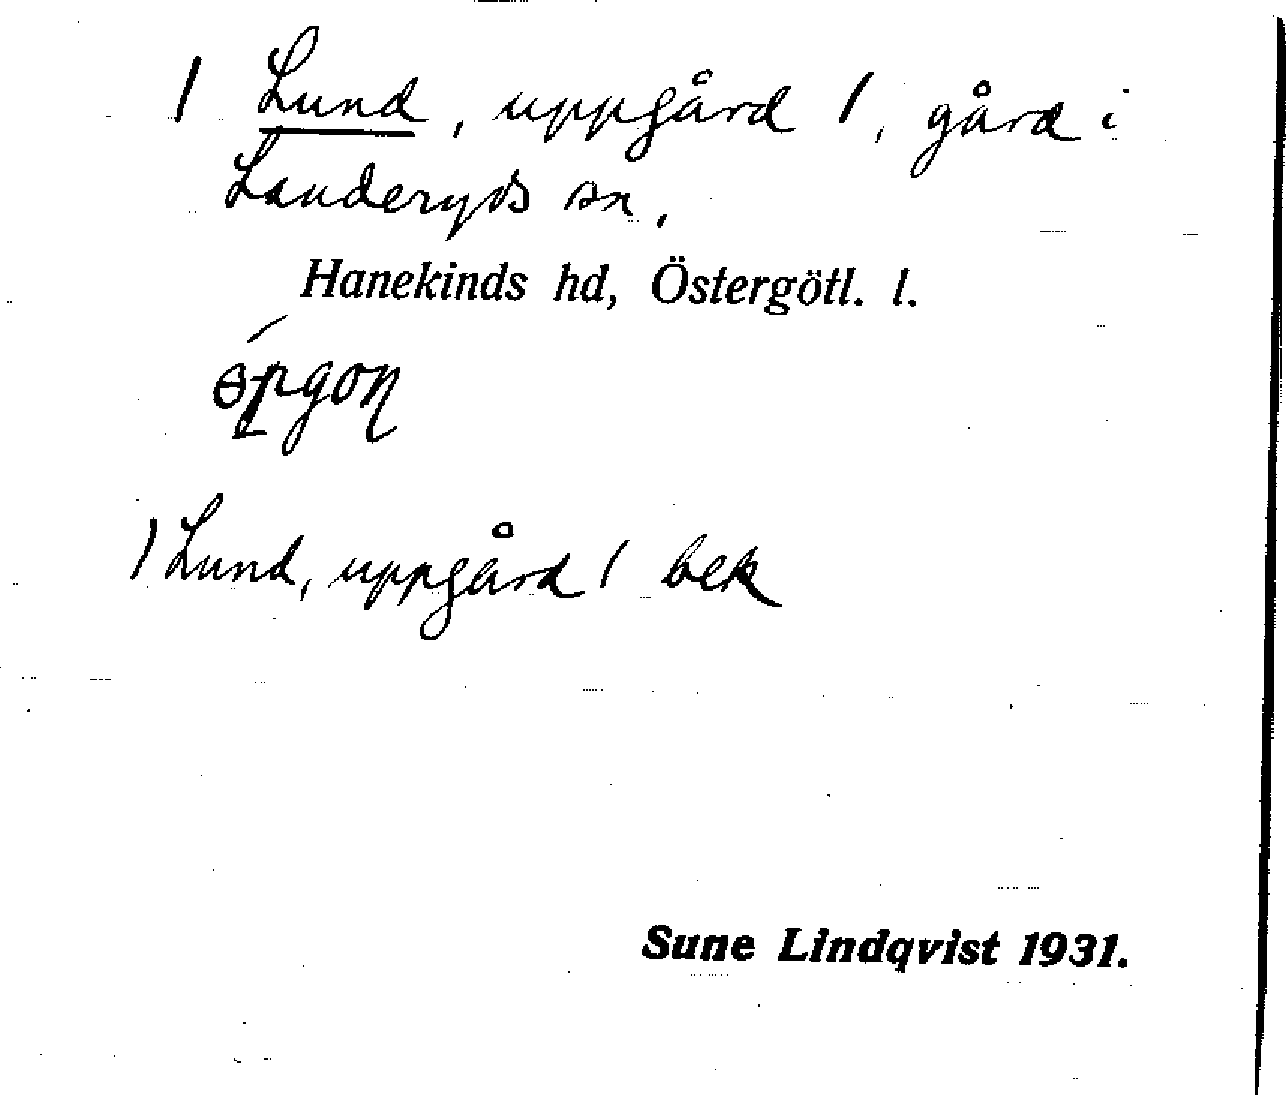 / Lund, uppgård /, gård i
Landeryds sn,
Hanekinds hd, Östergötl. l.
/ Lund, uppgård / bek
Sune Lindqvist 1931.